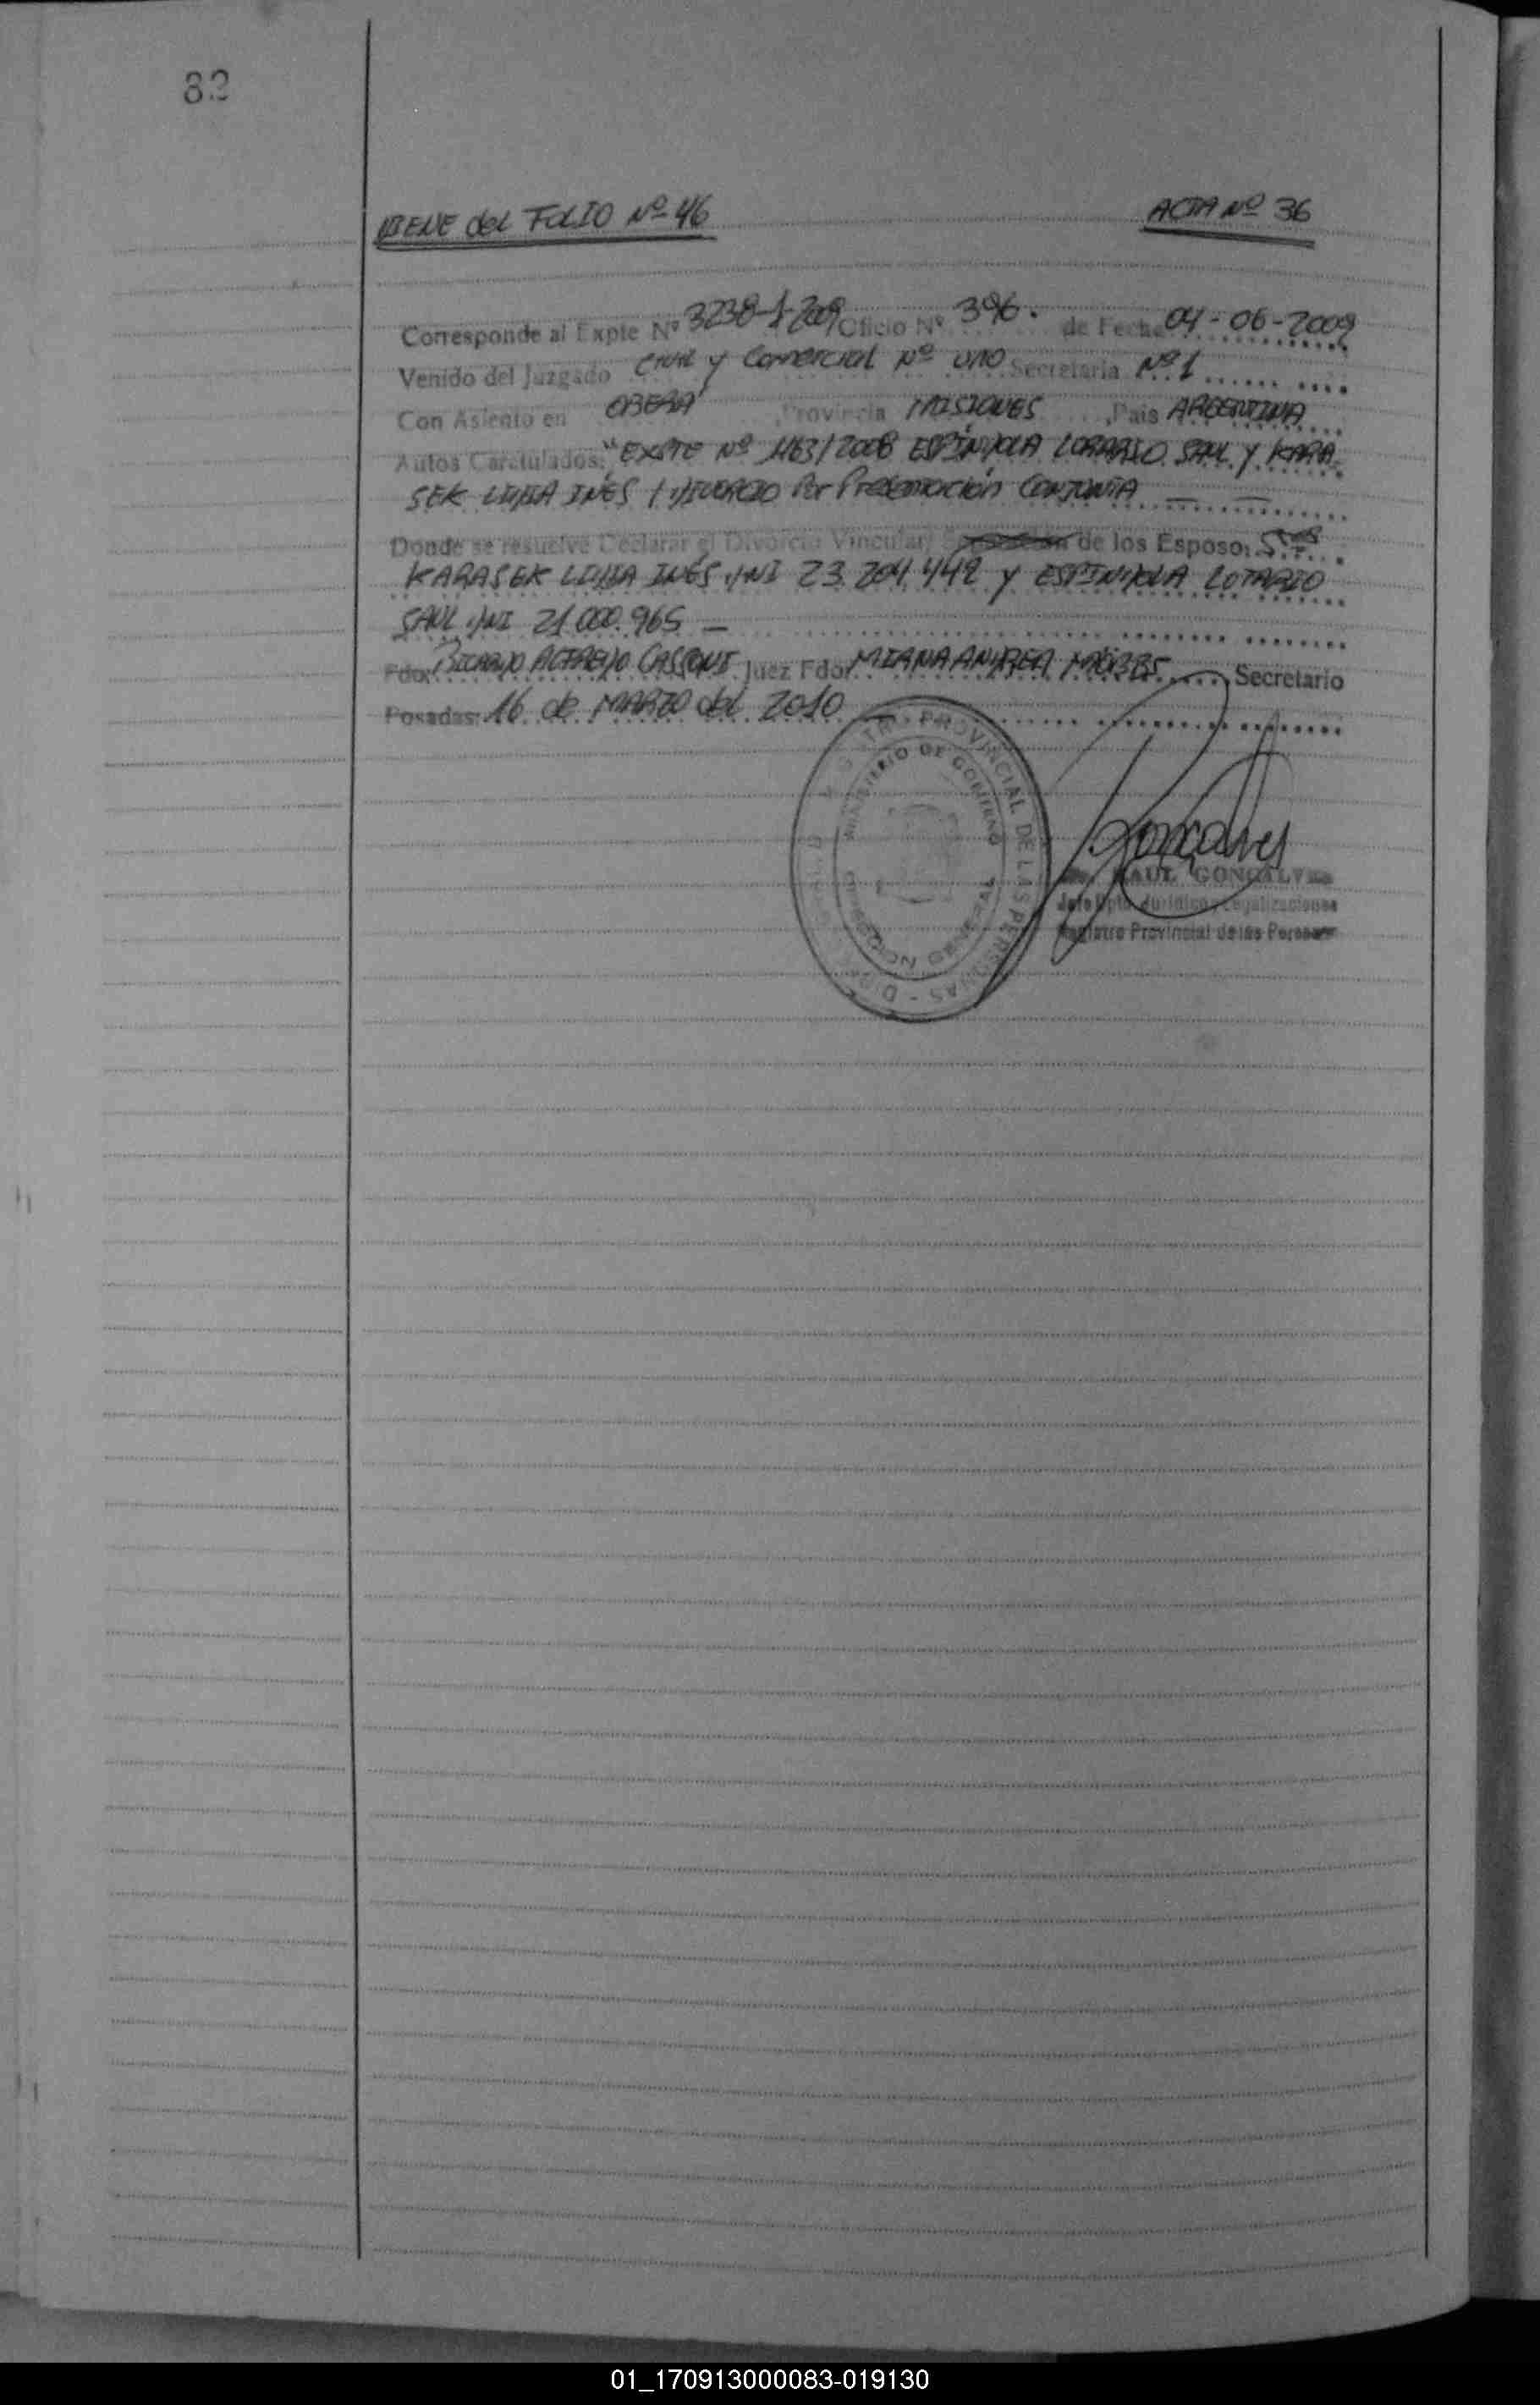 82
VIENE del FOLIO Nº 46
ACTA Nº 36
Corresponde al Expte Nº 3238-J-2009 Oficio Nº 396. de Fecha 04-06-2009
Venido del Juzgado Civil y Comercial Nº uno Secretaria Nº 1
Con Asiento en OBERÁ, Provincia MISIONES, Pais ARGENTINA
Autos Caratulados: "EXPTE Nº 1163/2008 ESPÍNDOLA SAUL Y KARA
SEK INÉS / DIVORCIO Por Presentación CONJUNTA
Donde se resuelve Declarar el Divorcio Vincular/ de los Esposo:
KARASEK INÉS DNI 23.204.442 y ESPINDOLA LOTARIO
SAUL DNI 21.000.965
Fdo: CASSONI Juez Fdo: ANDREA Secretario
Posadas: 16 de MARZO del 2010
PROVINCIAL DE LAS PERSONAS
MINISTERIO DE GOBIERNO
DIRECCION GENERAL
RAUL GONCALVES
Jefe Dpto. Jurídico y Legalizaciones
Registro Provincial de las Personas
01_170913000083-019130